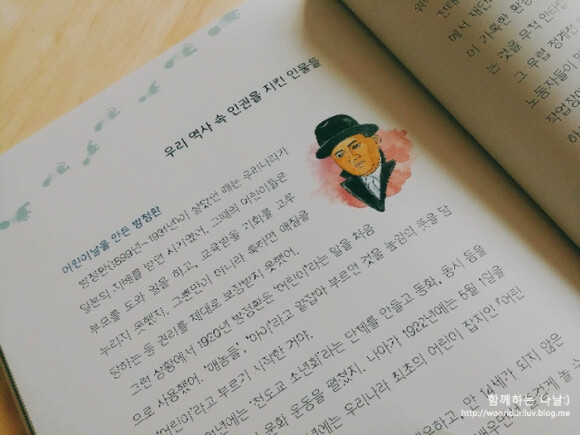 우리 역사 속 인권을 지킨 인물들
어린이날을 만든 방정환
방정환(1899년~1931년)이 살았던 때는 우리나라가
일본의 지배를 받던 시기였어. 그때의 어린이들은
부모를 도와 일을 하고, 교육받을 기회를 고루
누리지 못했지. 그뿐만이 아니라 툭하면 매질을
당하는 등 권리를 제대로 보장받지 못했어.
그런 상황에서 1920년 방정환은 '어린이'라는 말을 처음
으로 사용했어. '애놈들', '아이'라고 얕잡아 부르던 것을 높임의 뜻을 담
'어린이'라고 부르기 시작한 거야.
년에는 '천도교 소년회'라는 단체를 만들고 동화, 동시 등을
문화 운동을 펼쳤지. 나아가 1922년에는 5월 1일을
년에는 우리나라 최초의 어린이 잡지인 『어린
만 세가 되지 않은
에서
이 가혹한
는 것을 무척
그 유럽
노동자들이
작업장
함께하는 나날:)
http://wooriduriluv.blog.me